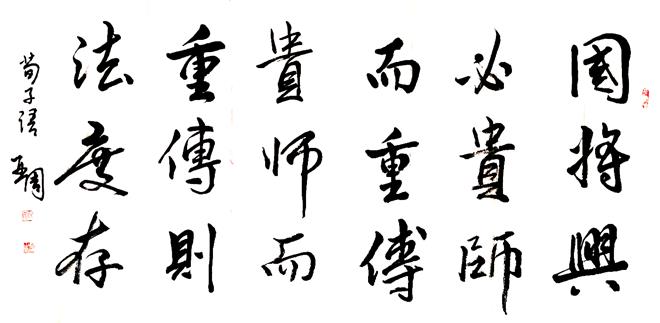 國將興
必貴師
而重傅
貴師而
重傅則
法度存
荀子語